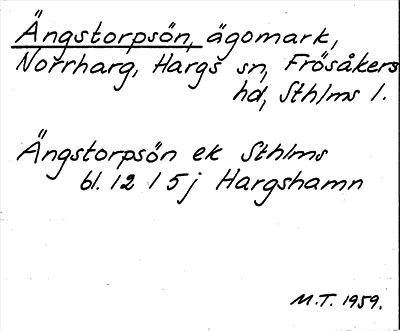 Ängstorpsön, ägomark,
Norrharg, Hargs sn, Frösåkers
hd, Sthlms l.
Ängstorpsön ek Sthlms
bl. 12 I 5j Hargshamn
M.T. 1959.